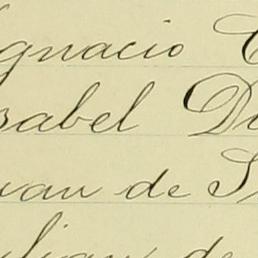 gnacio C
sabel D
uan de S
ulian de